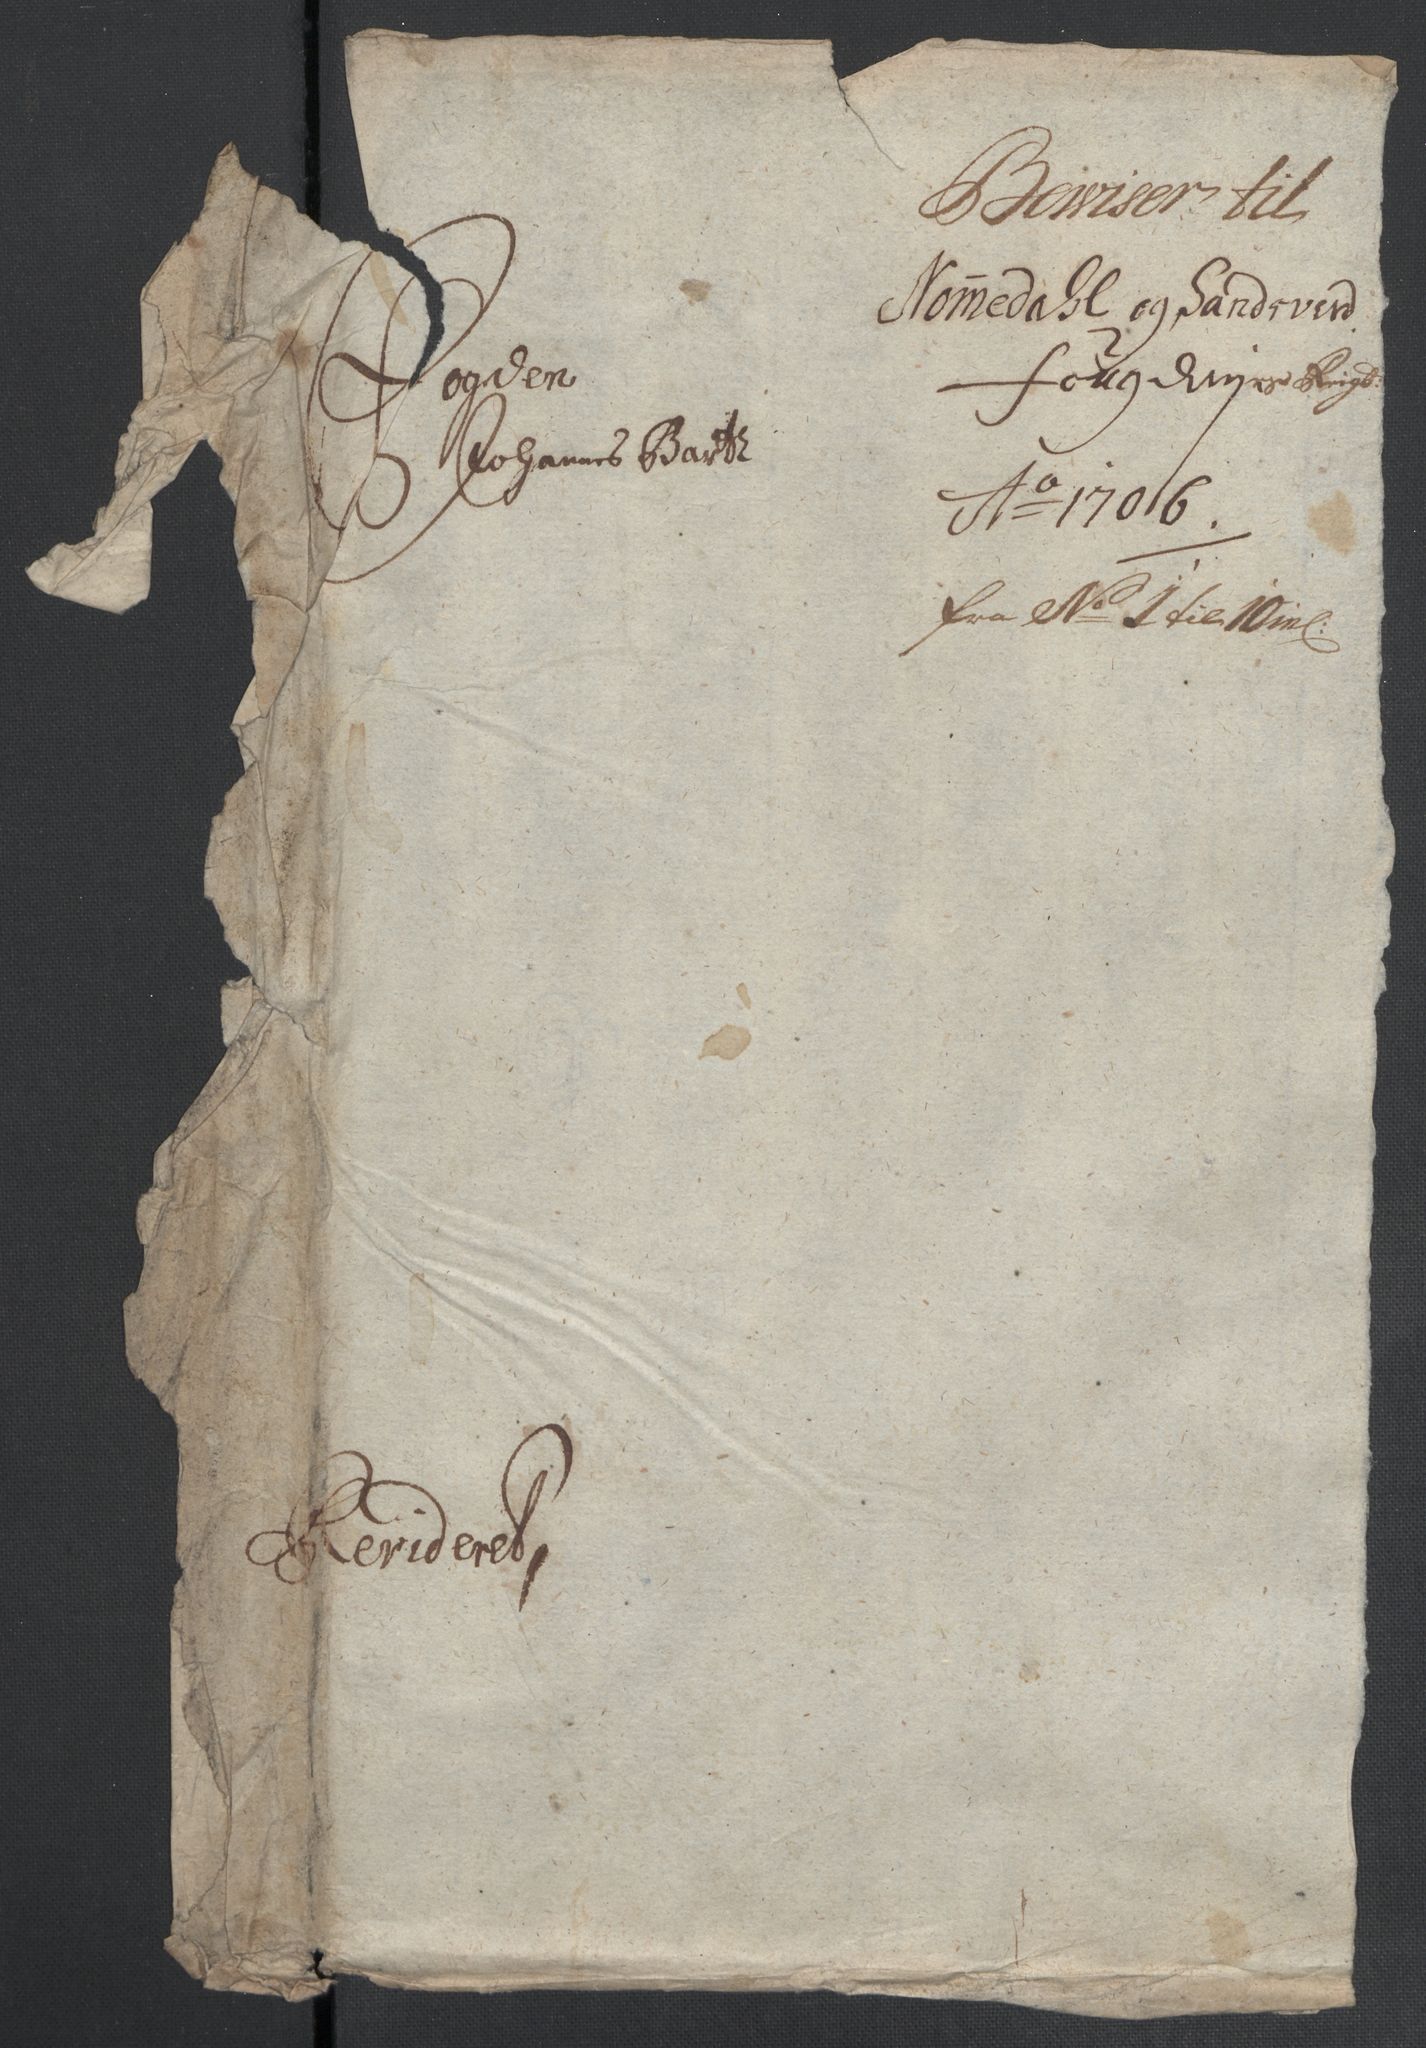 Bewiser til
Nom̄edahl og Sandsverd
fougderjers Regt:
Ao 1706.
fra No 1 til 10 incl:
Fogden
Johannes Barth
Revideret